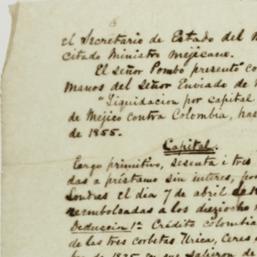 el Secretario de Estado del
citado Ministro mejicano.
El señor Pombo presentó co
manos del Señor Enviado de
"Liquidacion por capital
de Méjico contra Colombia, has
de 1855.
Capital.
Cargo primitivo, sesenta i tres
das a préstamo sin interes, po
Londres el dia 7 de abril de 1
reembolsadas a los dieziocho
Deduccion 1ª Crédito colombia
de las tres corbetas Urica, Ceres
de 1825 en que salieron de